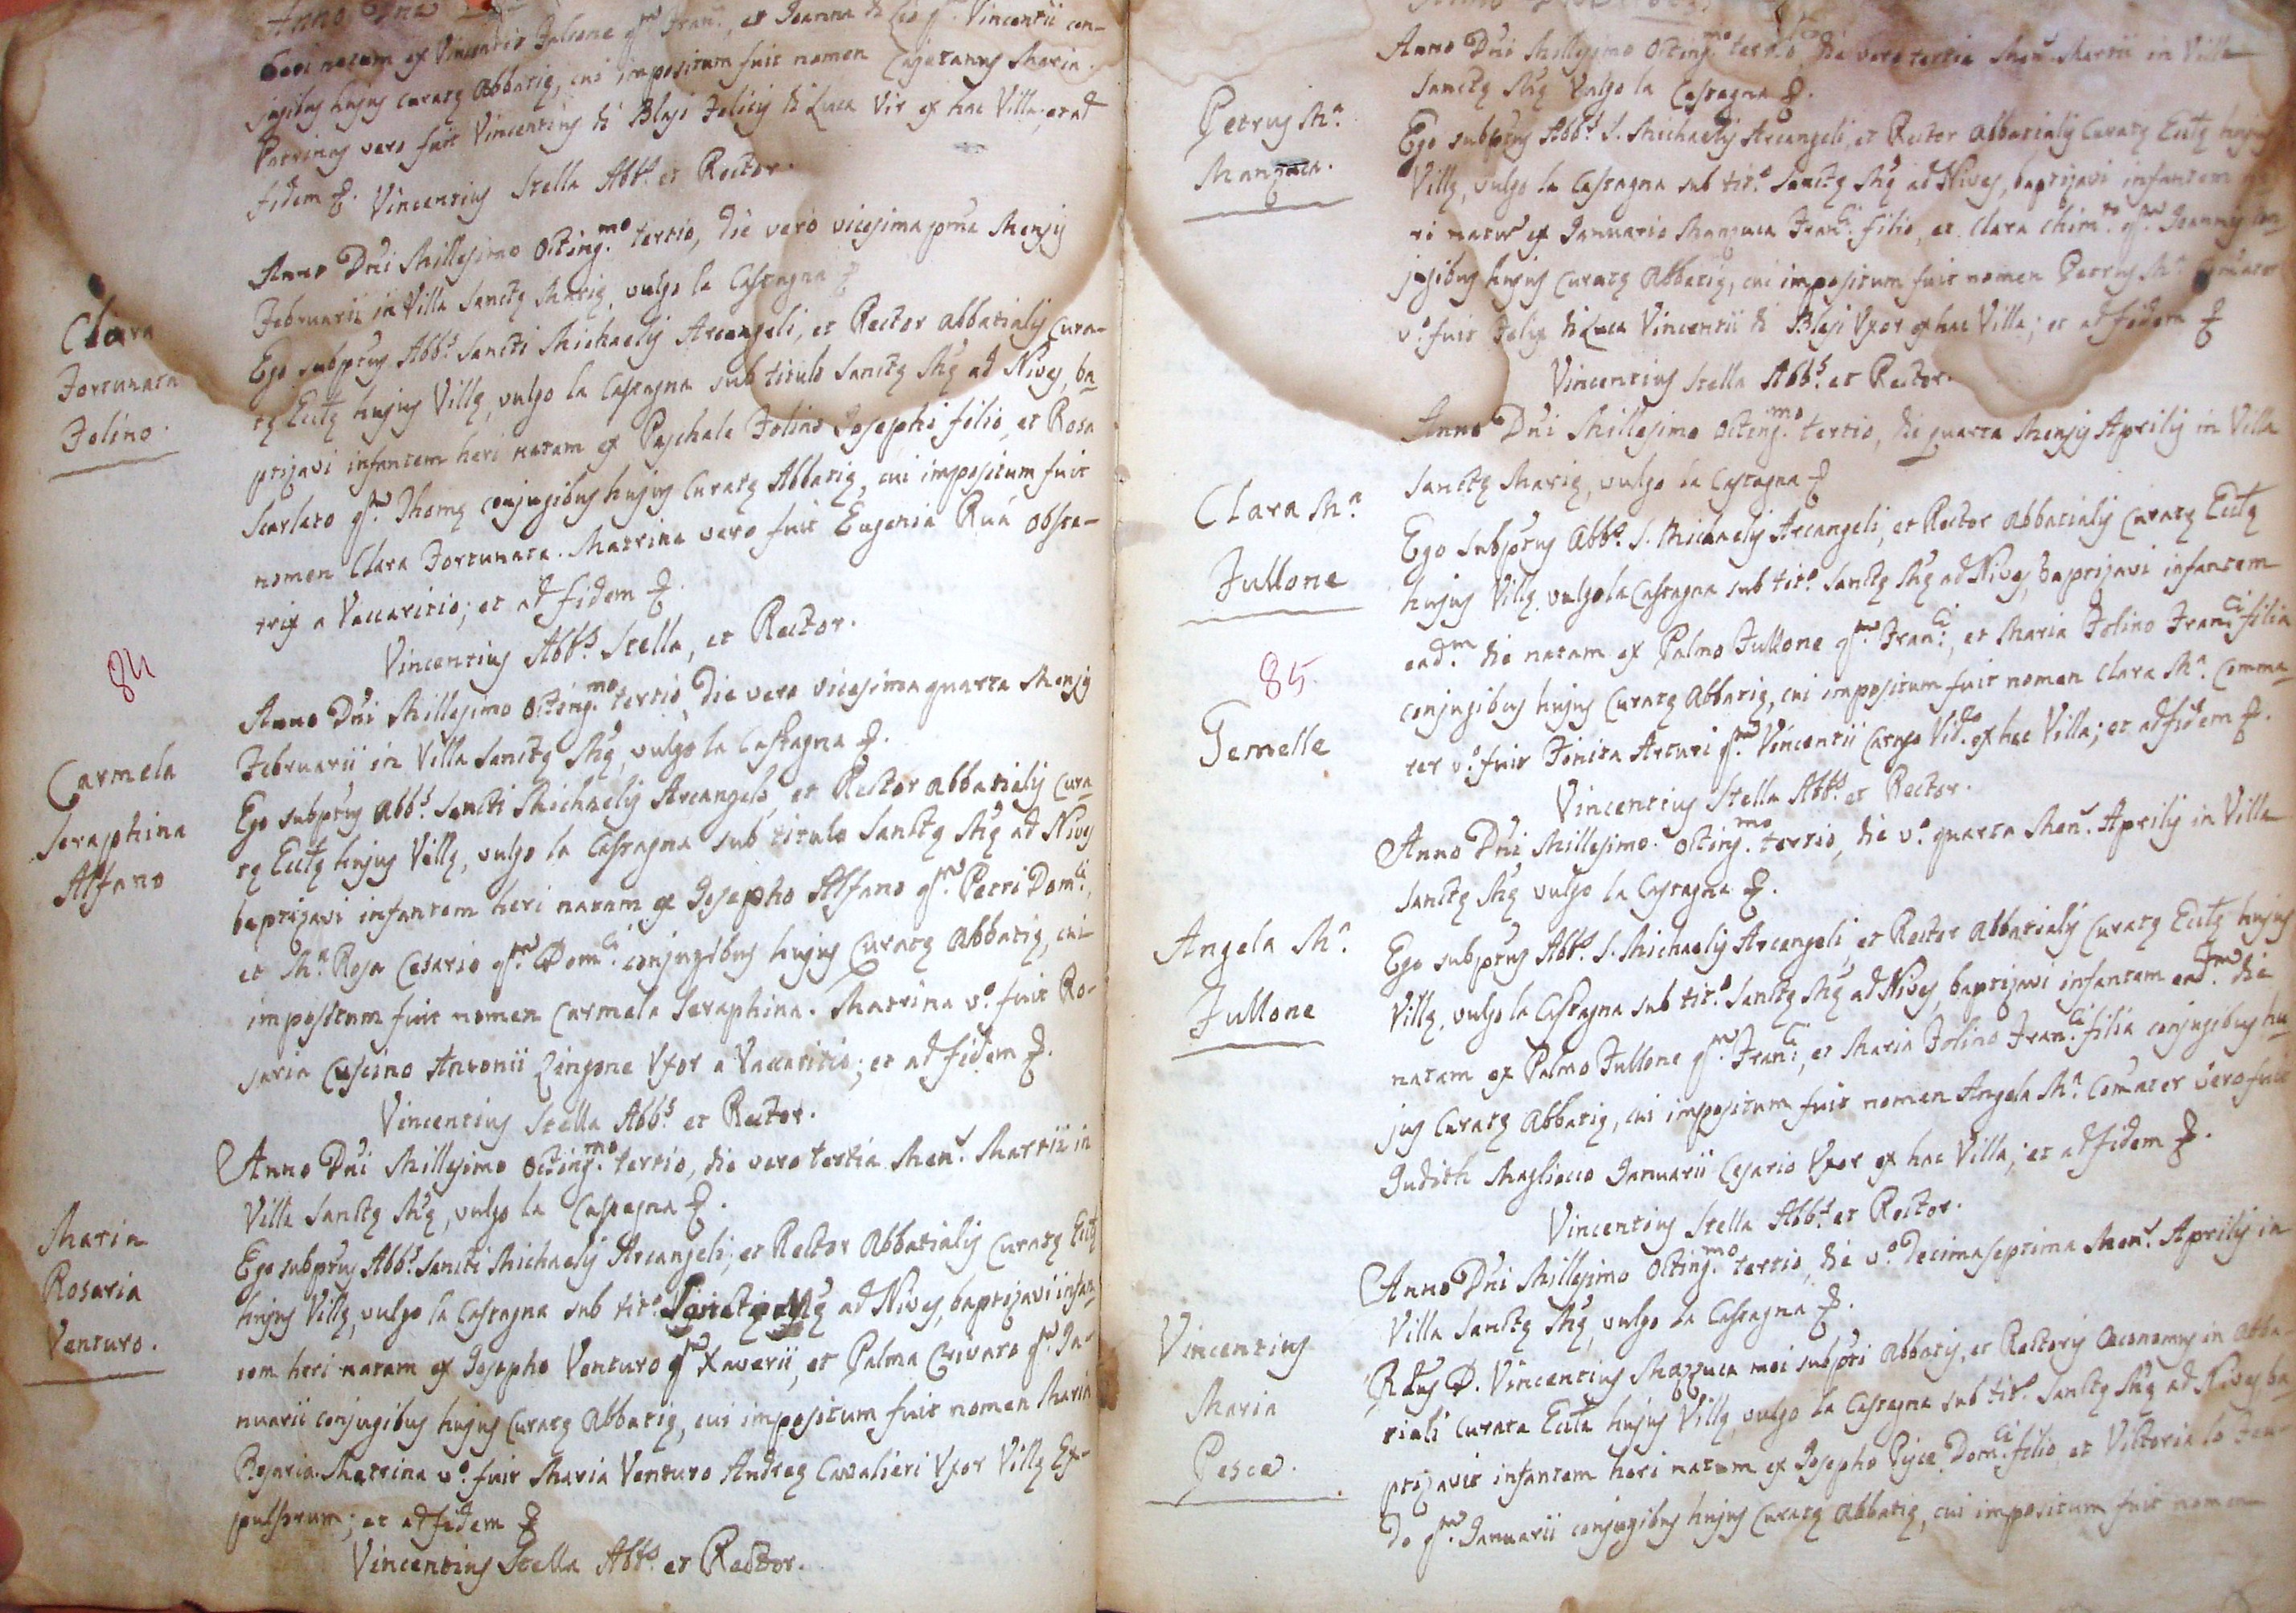 Anno Dni
heri natum ex Vincentio Falcone qm Fran:, et Joanna di Leo qm Vincentii con-
jugibus hujus curatę Abbatię, cui impositum fuit nomen Cajetanus Maria.
Patrinus vero fuit Vincentius di Blasi Felicis di Luca Vir ex hac Villa; et ad
fidem. Vincentius Stella Abb.s et Rector.
Clara
Fortunata
Folino.
Anno Dni Millesimo Octing.mo tertio, die vero vicesima pma Mensis
Februarii in Villa Sanctę Marię, vulgo la Castagna
Ego subptus Abb.s Sancti Michaelis Arcangeli, et Rector abbatialis cura-
tę Ecclę hujus Villę, vulgo la Castagna sub titulo Sanctę Mę ad Nives, ba-
ptizavi infantem heri natam ex Paschale Folino Josephi filio, et Rosa
Scarlato qm Thomę conjugibus hujus Curatę Abbatię, cui impositum fuit
nomen Clara Fortunata. Matrina vero fuit Eugenia Ruá obste-
trix a Vaccaritio; et ad fidem.
Vincentius Abb.s Stella, et Rector.
84
Carmela
Seraphina
Alfano
Anno Dni Millesimo Octing.mo tertio, Die vero vicesima quarta Mensis
Februarii in Villa Sanctę Mę, vulgo la Castagna.
Ego subptus Abb.s Sancti Michaelis Arcangeli, et Rector abbatialis cura-
tę Ecclę hujus Villę, vulgo la Castagna sub titulo Sanctę Mę ad Nives
baptizavi infantem heri natam ex Josepho Alfano qm Petri Dom.ci,
et M.a Rosa Cesario qm Dom.ci conjugibus hujus Curatę Abbatię, cui
impositum fuit nomen Carmela Seraphina. Matrina v.o fuit Ro-
saria Cuscino Antonii Zingone Uxor a Vaccaritio; et ad fidem.
Vincentius Stella Abb.s et Rector.
Maria
Rosaria
Venturo.
Anno Dni Millesimo Octing.mo tertio, die vero tertia Men.s Martii in
Villa Sanctę Mę, vulgo la Castagna.
Ego subptus Abb.s Sancti Michaelis Arcangeli, et Rector Abbatialis Curatę Ecclę
hujus Villę, vulgo la Castagna sub tit.o Sanctę Mę ad Nives, baptizavi infan-
tem heri natam ex Josepho Venturo qm Xaverii, et Palma Crivaro qm Ja-
nuarii conjugibus hujus Curatę Abbatię, cui impositum fuit nomen Maria
Rosaria. Matrina v.o fuit Maria Venturo Andreę Cavalieri Uxor Villę Ex-
pulsorum; et ad fidem
Vincentius Stella Abb.s et Rector.
Petrus M.a
Manzuca.
Anno Dni Millesimo Octing.mo tertio, die vero tertia Men.s Martii in Villa
Sanctę Mę Vulgo la Castagna.
Ego subptus Abb.s S. Michaelis Arcangeli, et Rector abbatialis Curatę Ecclę hujus
Villę, vulgo la Castagna sub tit.o Sanctę Mę ad Nives, baptizavi infantem he-
ri natum ex Januario Manzuca Fran.ci filio, et Clara Chim.to qm Joannis con-
jugibus hujus Curatę Abbatię, cui impositum fuit nomen Petrus M.a Comater
v.o fuit Felix di Luca Vincentii di Blasi Uxor ex hac Villa; et ad fidem
Vincentius Stella Abb.s et Rector.
Clara M.a
Fullone
Anno Dni Millesimo Octing.mo tertio, die quarta Mensis Aprilis in Villa
Sanctę Marię, vulgo la Castagna
Ego subptus Abb.s S. Michaelis Arcangeli, et Rector abbatialis Curatę Ecclę
hujus Villę vulgo la Castagna sub tit.o Sanctę Mę ad Nives, baptizavi infantem
ead.m die natam ex Palmo Fullone qm Fran.ci, et Maria Folino Fran.ci filia
conjugibus hujus Curatę Abbatię, cui impositum fuit nomen Clara M.a Comma-
ter v.o fuit Finita Arturi qm Vincentii Carupo Vid.a ex hac Villa; et ad fidem.
Vincentius Stella Abb.s et Rector.
85.
Gemelle
Angela M.a
Fullone
Anno Dni Millesimo Octing.mo tertio, die v.o quarta Men.s Aprilis in Villa
Sanctę Mę vulgo la Castagna.
Ego subptus Abb.s S. Michaelis Arcangeli, et Rector Abbatialis Curatę Ecclę hujus
Villę, vulgo la Castagna sub tit.o Sanctę Mę ad Nives, baptizavi infantem ead.m die
natam ex Palmo Fullone qm Fran.ci, et Maria Folino Fran.ci filia conjugibus hu-
jus Curatę Abbatię, cui impositum fuit nomen Angela M.a Comater vero fuit
Judith Magliocco Januarii Cesario Uxor ex hac Villa; et ad fidem.
Vincentius Stella Abb.s et Rector.
Vincentius
Maria
Pesce.
Anno Dni Millesimo Octing.mo tertio, die v.o Decimaseptima Men.s Aprilis in
Villa Sanctę Mę, vulgo la Castagna.
Rdus D. Vincentius Mazzuca mei subpti Abbatis, et Rectoris Oeconomus in Abba-
tiali Curata Eccla hujus Villę, vulgo la Castagna sub tit.o Sanctę Mę ad Nives ba-
ptizavit infantem heri natum ex Josepho Pisce Dom.ci filio, et Victoria lo Feu-
do qm Januarii conjugibus hujus Curatę Abbatię, cui impositum fuit nomen